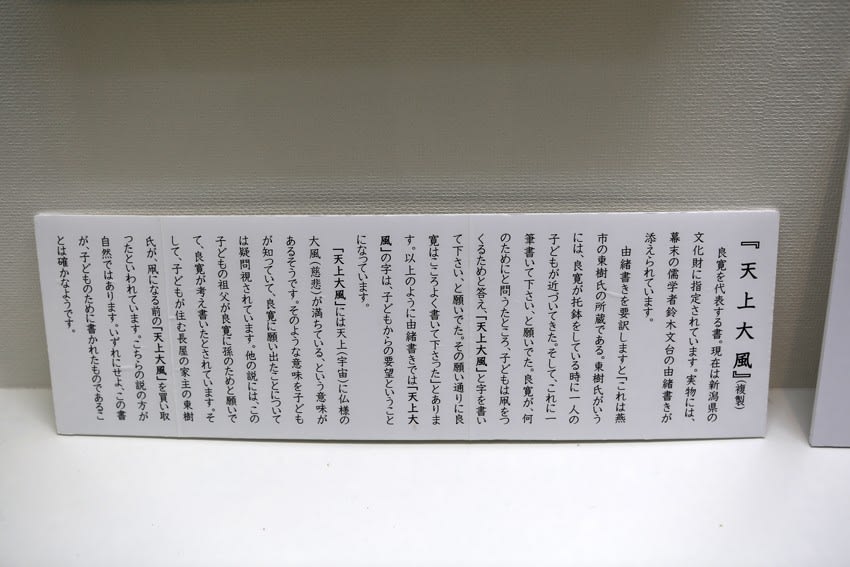 『天上大風』(複製)
良寛を代表する書。現在は新潟県の
文化財に指定されています。実物には、
幕末の儒学者鈴木文台の由緒書きが
添えられています。
由緒書きを要訳しますと「これは燕
市の東樹氏の所蔵である。東樹氏がいう
には、良寛が托鉢をしている時に一人の
子どもが近づいてきた。そして、これに一
筆書いて下さい、と願いでた。良寛が、何
のためにと問うたところ、子どもは凧をつ
くるためと答え、「天上大風」と字を書い
て下さい、と願いでた。その願い通りに良
寛はこころよく書いて下さった」とありま
す。以上のように由緒書きでは「天上大
風」の字は、子どもからの要望ということ
になっています。
「天上大風」には天上(宇宙)に仏様の
大風(慈悲)が満ちている、という意味が
あるそうです。そのような意味を子ども
が知っていて、良寛に願い出たことについて
は疑問視されています。他の説には、この
子どもの祖父が良寛に孫のためと願いで
て、良寛が考え書いたとされています。そ
して、子どもが住む長屋の家主の東樹
氏が、凧になる前の「天上大風」を買い取
ったといわれています。こちらの説の方が
自然ではあります。いずれにせよ、この書
が、子どものために書かれたものであるこ
とは確かなようです。